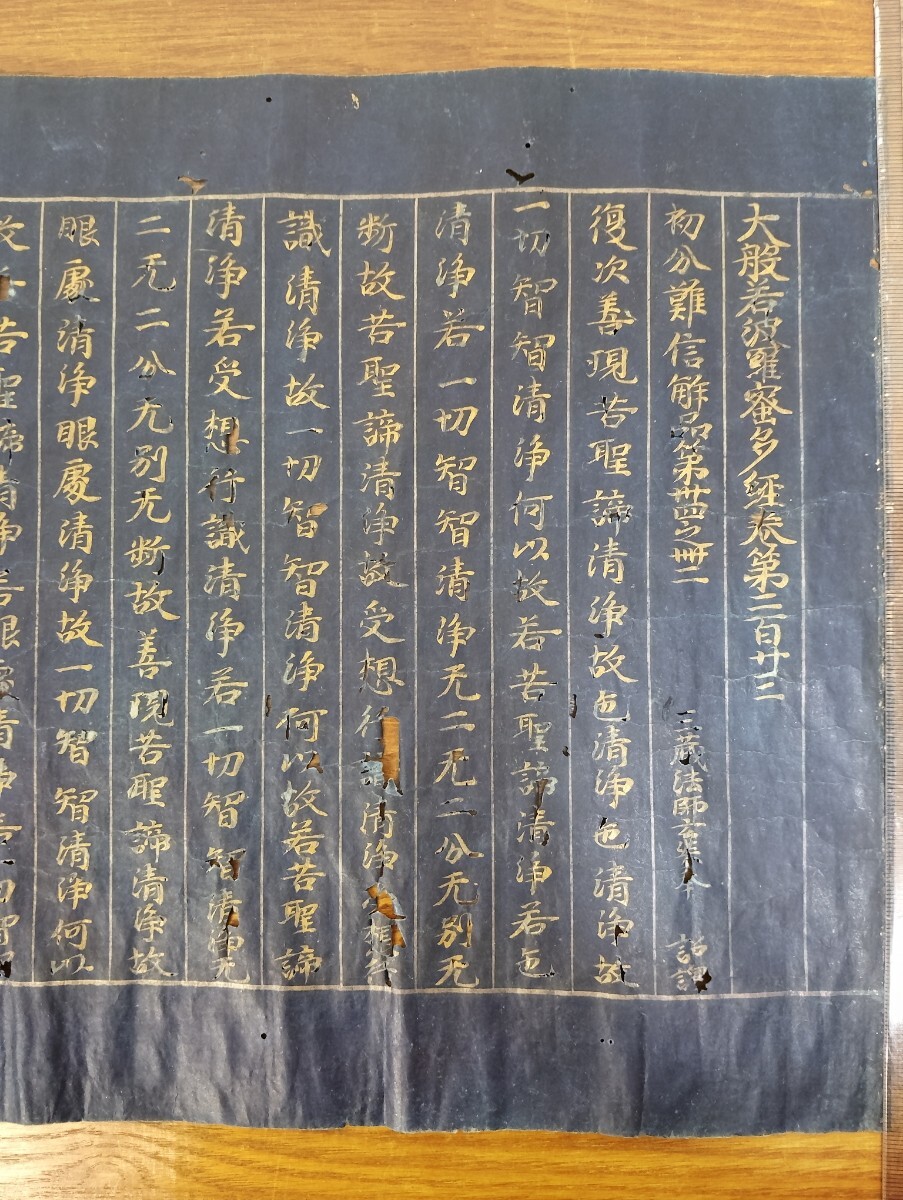 大般若波羅蜜多經卷第二百廿三
初分難信解品第卅四之卌二 三蔵法師玄奘奉 詔譯
復次善現苦聖諦清淨故色清淨色清淨故
一切智智清淨何以故若苦聖諦清淨若色
清淨若一切智智清淨无二无二分无別无
斷故苦聖諦清淨故受想行識清淨受想行
識清淨故一切智智清淨何以故若苦聖諦
清淨若受想行識清淨若一切智智清淨无
二无二分无別无斷故善現苦聖諦清淨故
眼處清淨眼處清淨故一切智智清淨何以
故若苦聖諦清淨若眼處清淨若一切智